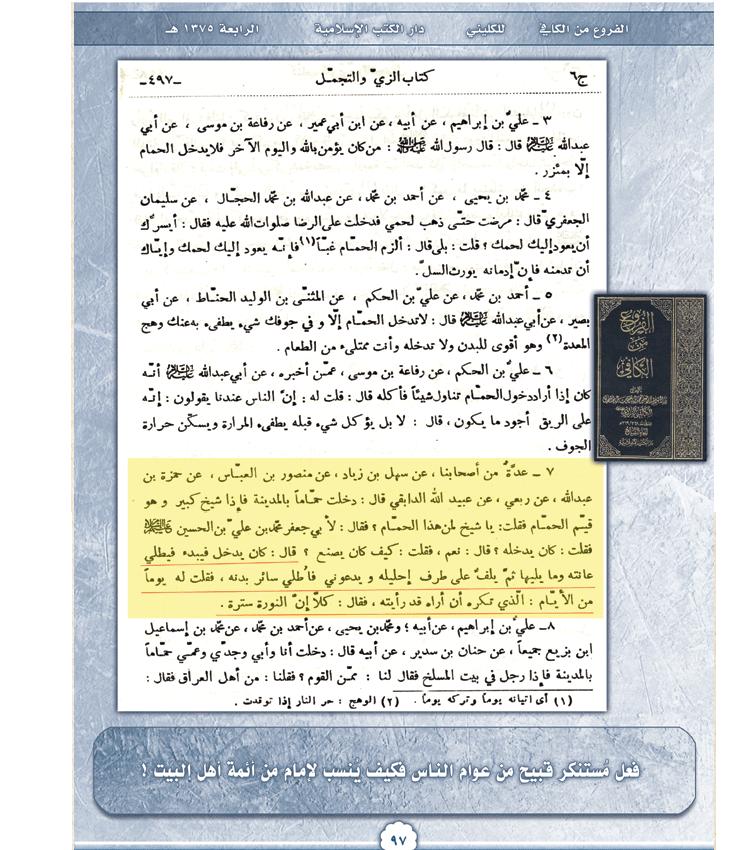 الفروع من الكافي للكليني دار الكتب الإسلامية الرابعة ١٣٧٥ هـ
ج٦ كتاب الزيّ والتجمّل -٤٩٧-
٣ ـ عليُّ بن إبراهيم ، عن أبيه ، عن ابن أبي عمير ، عن رفاعة بن موسى ، عن أبي
عبدالله عليه السلام قال : قال رسول الله صلى الله عليه وآله : من كان يؤمن بالله واليوم الآخر فلا يدخل الحمام
إلّا بمئزر .
٤ ـ محمّد بن يحيى ، عن أحمد بن محمّد ، عن عبدالله بن محمّد الحجّال ، عن سليمان
الجعفريّ قال : مرضت حتّى ذهب لحمي فدخلت على الرضا صلوات الله عليه فقال : أيسرُّك
أن يعود إليك لحمك ؟ قلت : بلى قال : ألزم الحمّام غبّاً(١) فإنّه يعود إليك لحمك وإيّاك
أن تدمنه فإنّ إدمانه يورث السلّ .
٥ ـ أحمد بن محمّد ، عن عليّ بن الحكم ، عن المثنّى بن الوليد الحنّاط ، عن أبي
بصير ، عن أبي عبدالله عليه السلام قال : لاتدخل الحمّام إلّا و في جوفك شيء يطفىء به عنك وهج
المعدة(٢) وهو أقوى للبدن ولا تدخله وأنت ممتلىء من الطعام .
٦ ـ عليُّ بن الحكم ، عن رفاعة بن موسى ، عمّن أخبره ، عن أبي عبدالله عليه السلام أنّه
كان إذا أراد دخول الحمّام تناول شيئاً فأكله قال : قلت له : إنّ الناس عندنا يقولون : إنّه
على الريق أجود ما يكون ، قال : لا بل يؤكل شيء قبله يطفىء المرارة ويسكّن حرارة
الجوف .
٧ ـ عدّةٌ من أصحابنا ، عن سهل بن زياد ، عن منصور بن العبّاس ، عن حمزة بن
عبدالله ، عن ربعي ، عن عبيد الله الدابقي قال : دخلت حمّاماً بالمدينة فإذا شيخ كبير و هو
قيّم الحمّام فقلت : يا شيخ لمن هذا الحمّام ؟ فقال : لأبي جعفر محمّد بن عليّ بن الحسين عليهما السلام
فقلت : كان يدخله ؟ قال : نعم ، فقلت : كيف كان يصنع ؟ قال : كان يدخل فيبدء فيطلي
عانته وما يليها ثمّ يلفّ على طرف إحليله و يدعوني فأُطلي سائر بدنه ، فقلت له يوماً
من الأيّام : الّذي تكره أن أراه قد رأيته ، فقال : كلّا إنّ النورة سترة .
٨ ـ عليُّ بن إبراهيم ، عن أبيه ؛ ومحمّد بن يحيى ، عن أحمد بن محمّد ، عن محمّد بن إسماعيل
ابن بزيع جميعاً ، عن حنان بن سدير ، عن أبيه قال : دخلت أنا وأبي وجدّي وعمّي حمّاماً
بالمدينة فإذا رجل في بيت المسلخ فقال لنا : ممّن القوم ؟ فقلنا : من أهل العراق فقال :
(١) أي اتيانه يوماً وتركه يوماً . (٢) الوهج : حر النار إذا توقدت .
الفروع
من
الكافي
فعل مُستنكر قبيح من عوام الناس فكيف يُنسب لإمام من أئمة أهل البيت !
٩٧